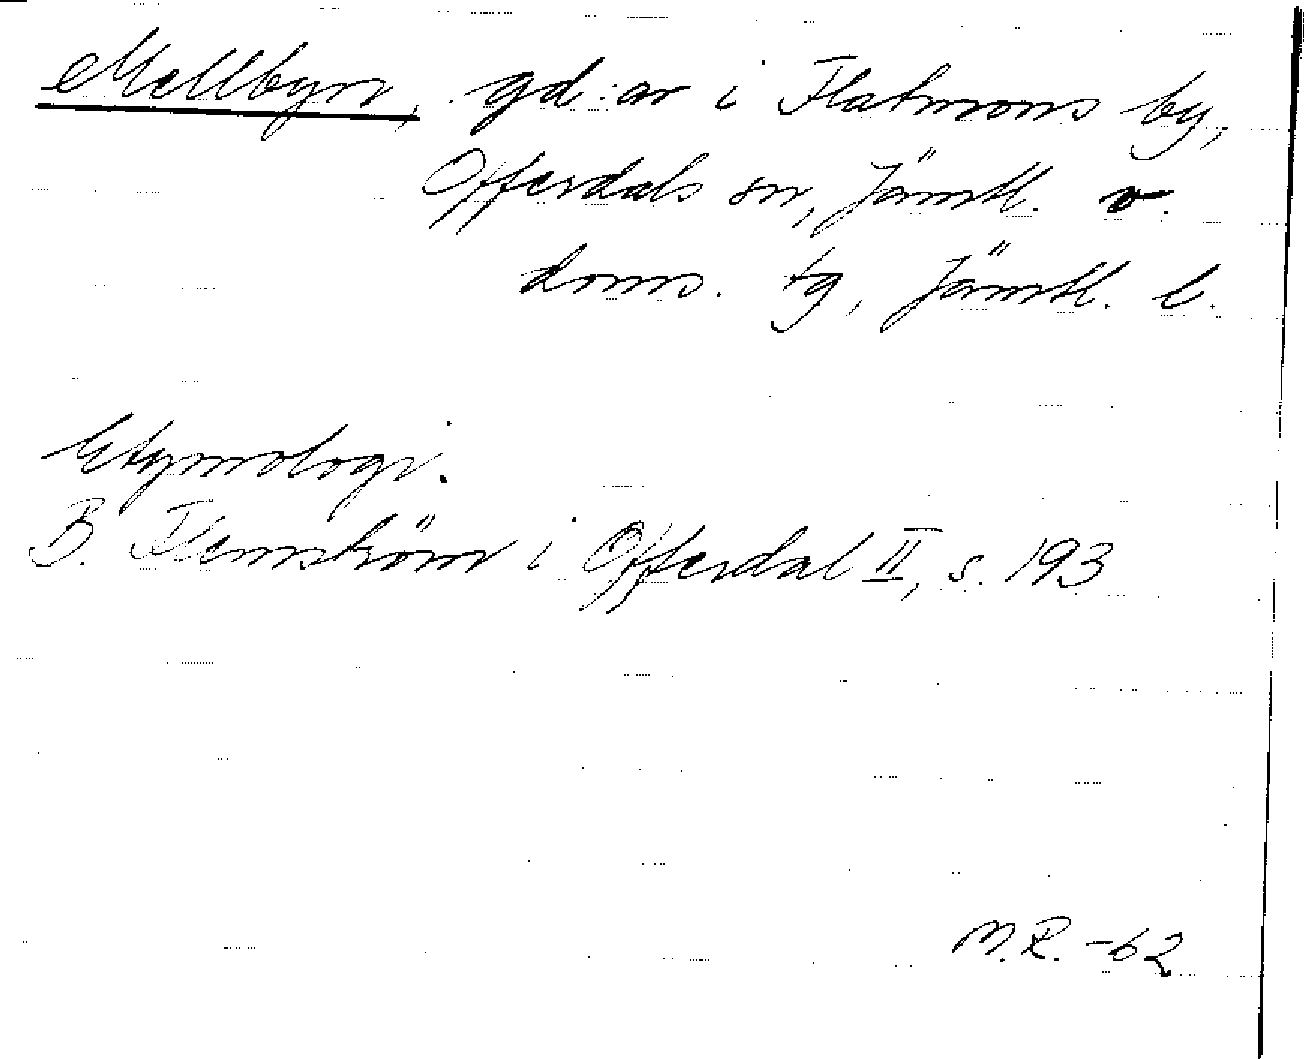 Mellbyn, gd:ar i Flatmons by,
Offerdals sn, Jämtl. v.
doms. tg, Jämtl. l.
Etymologi.
B. Flemström i Offerdal II, s. 193
M.R. -62